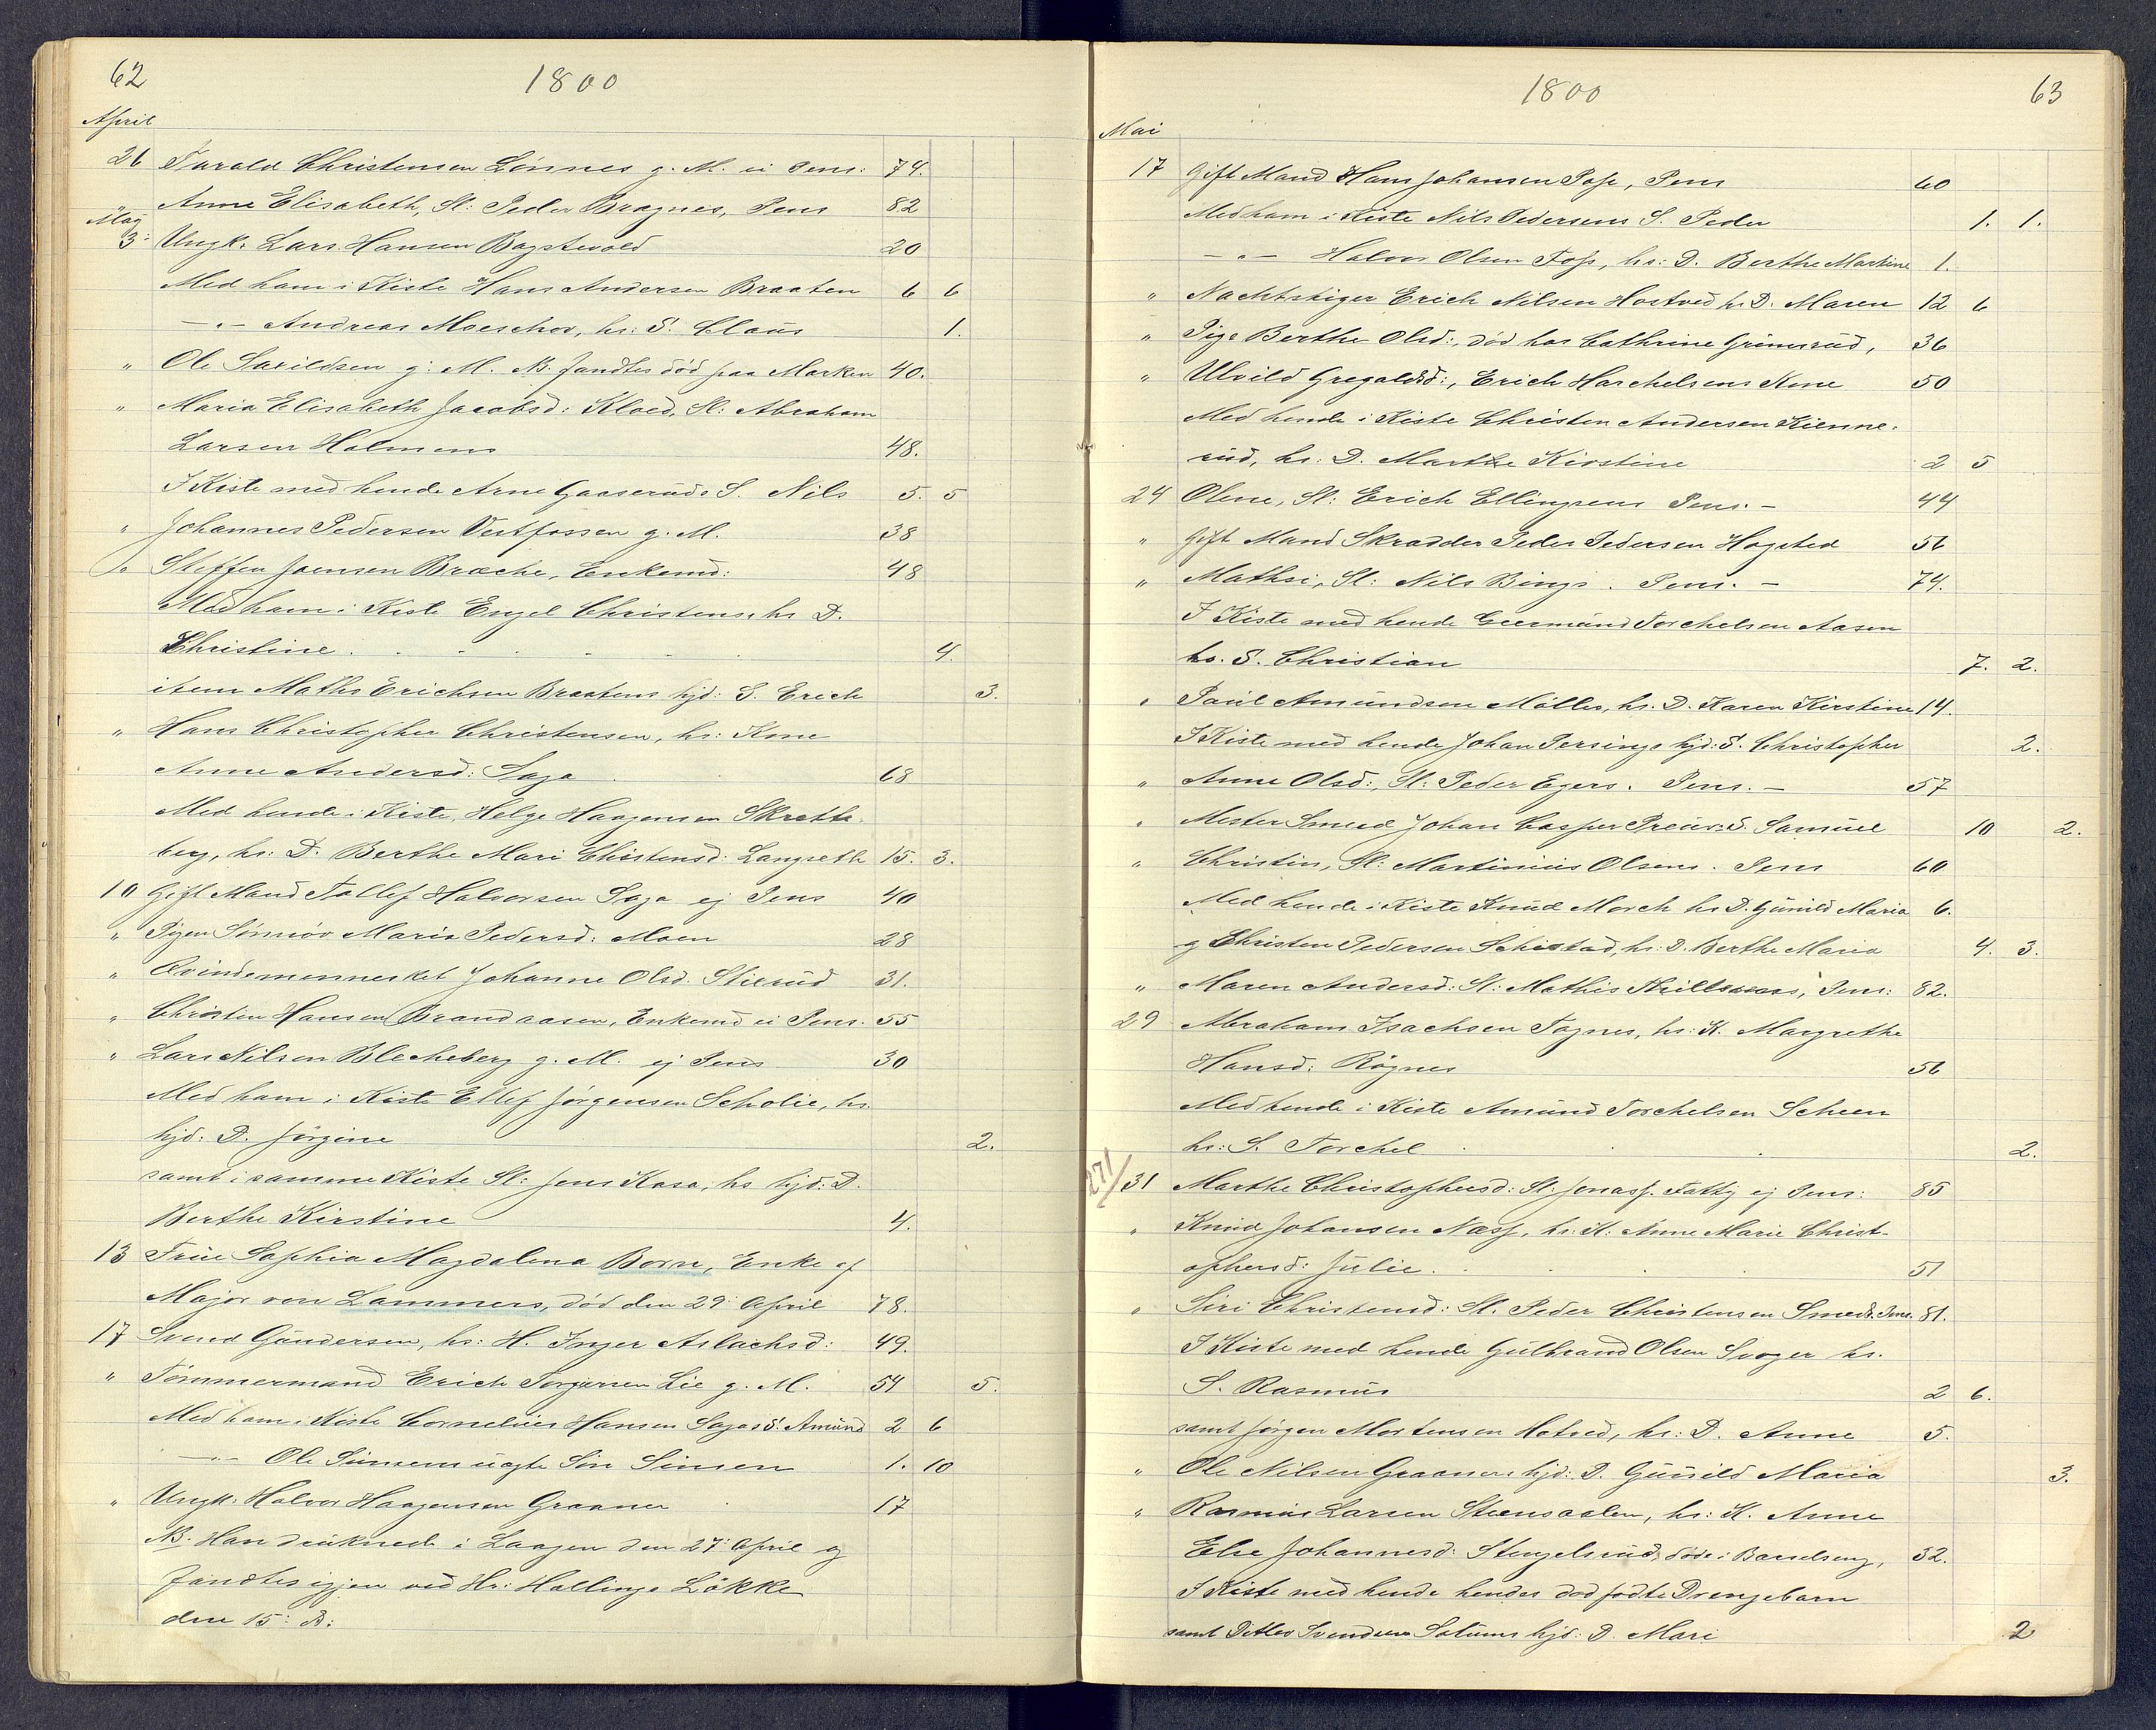 62
1800
April
26 Tarald Christensen Lønnes g. M. ei Pens: 74.
" Anne Elisabeth, Sl: Peder Bragnes, Pens 82
May
3: Ungk. Lars Hansen Bagstevold 20
Med ham i Kiste Hans Andersen Braaten 6 6
—"— Andreas Moeschov, hs: S. Claus 1.
" Ole g: M. NB. fandtes død paa Marken 40.
" Maria Elisabeth Jacobsd: Kloed, Sl: Abraham
Larsen Holmens 48.
I Kiste med hende Arne Gaaseruds S. Nils 5. 5
" Johannes Pedersen Vestfossen g. M. 38
" Steffen Joensen Bræche, Enkemd: 48
Med ham i Kiste Engel Christens. hs D.
Christine . . . 4.
item Maths Erichsen Braatens hjd: S. Erich 3.
" Hans Christopher Christensen, hs: Kone
Anne Andersd: Saga 68
Med hende i Kiste, Helge Haagensen Skrette-
berg, hs: D. Berthe Mari Christensd: Langseth 15. 3.
10 Gift Mand Tollef Halvorsen Saga ej Pens 40
" Pigen Sønnøv Maria Pedersd: Moen 28
" Qvindemennesket Johanne Olsd. Stilerud 31.
" Christen Hansen Brandaasen, Enkemd ei Pens. 55
" Lars Nilsen Blecheberg g. M. ej Pens 30
Med ham i Kiste Ellef Jørgensen Scholie, hs.
hjd: D. Jørgine 2.
samt i samme Kiste Sl: Jens Kasa, hs hjd: D.
Berthe Kirstine 4.
13 Frue Sophia Magdalena Born, Enke af
Major von Lammers, død den 29: April 78.
17 Svend Gundersen, hs: H. Inger Aslachsd: 49.
" Tømmermand Erich Torgersen Lie g. M. 54 5.
Med ham i Kiste Cornelius Hansen Sagas S. Amund 2 6
—"— Ole Simens uægte Søn Simen 1. 10
" Ungk. Halvor Haagensen Graanes 17
NB. Han druknede i Laagen den 27: April og
fandtes igjen ved Hr: Hallings Løkke
den 15: D:
1800
63
Mai
17 Gift Mand Hans Johansen Pose, Pens 60
Med ham i Kiste Nils Pedersens S. Peder 1. 1.
—"— Halvor Olsen Foss, hs: D. Berthe Martine 1.
" Nachtstiger Erich Nilsen Hostved hs D. Maren 12 6
" Pige Berthe Olsd:, død hos Cathrine Grimsrud, 36
" Ulvild Gregaldsd:, Erich Harchelsens Kone 50
Med hende i Kiste Christen Andersen Kienne-
rud, hs. D. Marthe Kirstine 2 5
24 Olene, Sl: Erich Ellingsens Pens. — 44
" Gift Mand Skrædder Peder Pedersen Hogsted 56
" Mathsi, Sl: Nils Bings. Pens. — 74.
I Kiste med hende Geermund Torchelsen Aasen
hs. S. Christian 7. 2.
" Paul Amundsen Møller, hs. D. Karen Kirstine 14.
I Kiste med hende Johan Persings hjd: S. Christopher 2.
" Anne Olsd:, Sl: Peder Egers. Pens. — 57
" Mester Smed Johan Casper Preus S. Samuel 10 2.
" Christin, Sl: Martinius Olsens. Pens 60
Med hende i Kiste Knud Morch hs D. Gunild Maria 6.
og Christen Pedersen Schistad, hs: D. Berthe Maria 4. 3.
" Maren Andersd: Sl: Mathis Pens: 82.
29 Abraham Isachsen Tagnes, hs: K. Margrethe
Hansd: Røgnes 56
Med hende i Kiste Amund Torchelsen Scheen
hs: S. Torchel . . . 2.
271/
31 Marthe Christophersd: Sl: Jonass. Fattig ej Pens: 85
" Knud Johansen Næss, hs. K: Anne Marie Christ-
ophersd: Julie. . . 51
" Siri Christensd: Sl. Peder Christensen Smeds Pens. 81.
I Kiste med hende Gulbrand Olsen Svoger hs.
S. Rasmus 2 6.
samt Jørgen Mortensen Hotved, hs: D. Anne 5.
" Ole Nilsen Graanes hjd: D. Gunild Maria 3.
" Rasmus Larsen Steensaalen, hs: K. Anne
Else Johannesd: Stengelsrud, døde i Barselseng, 32.
I Kiste med hende hendes dødfødte Drengebarn
samt Ditlev Svendsen Solums hjd: D. Mari 2